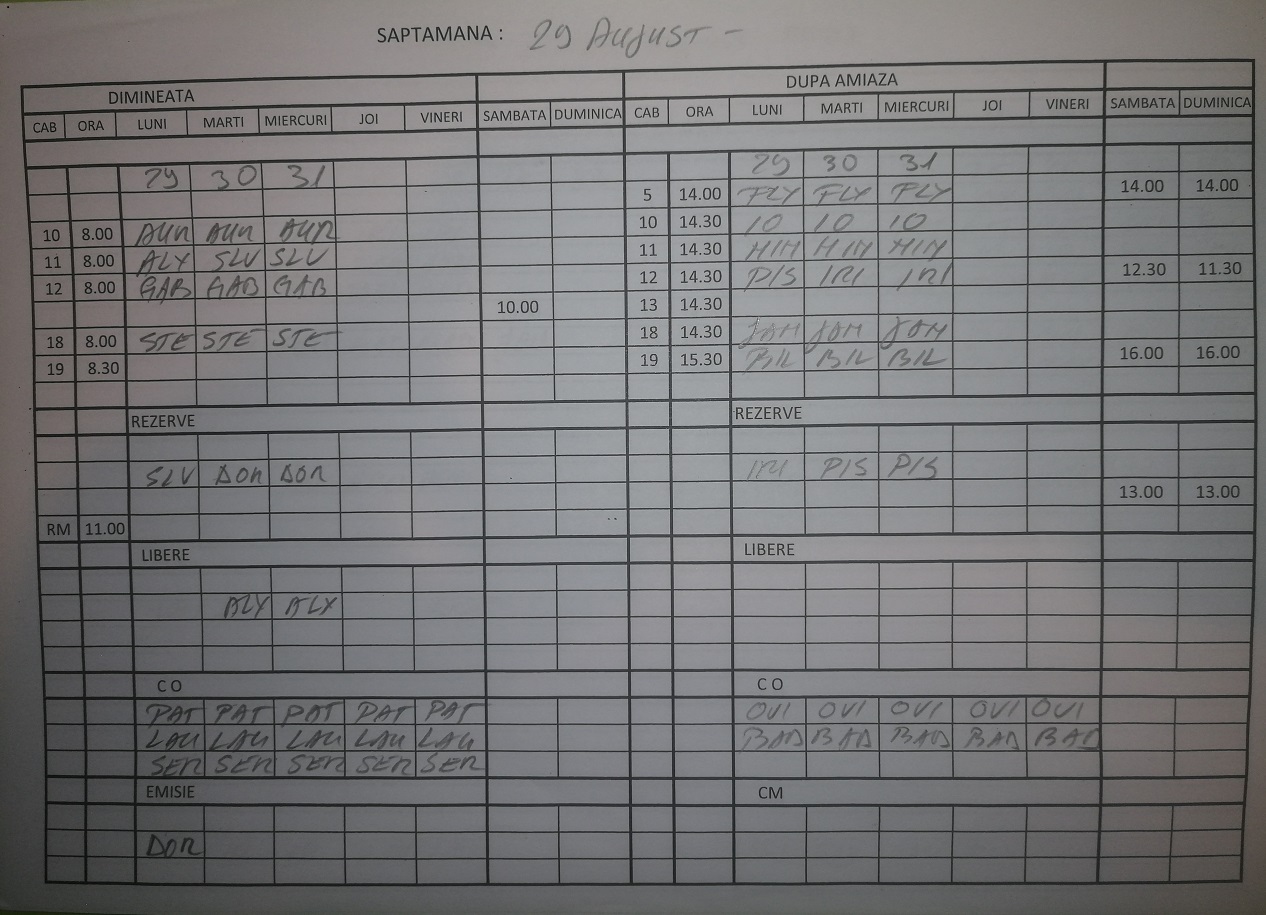 SAPTAMANA : 29 August -
DIMINEATA DUPA AMIAZA
CAB ORA LUNI MARTI MIERCURI JOI VINERI SAMBATA DUMINICA CAB ORA LUNI MARTI MIERCURI JOI VINERI SAMBATA DUMINICA
29 30 31 29 30 31
5 14.00 FLY FLY FLY 14.00 14.00
10 8.00 AUR AUR AUR 10 14.30 10 10 10
11 8.00 ALX SLV SLV 11 14.30 MIH MIH MIH
12 8.00 GAB GAB GAB 12 14.30 PIS IRI IRI 12.30 11.30
10.00 13 14.30
18 8.00 STE STE STE 18 14.30 14.30
19 8.30 19 15.30 BIL BIL BIL 16.00 16.00
REZERVE REZERVE
SLV DOR DOR IRI PIS PIS
13.00 13.00
RM 11.00
LIBERE LIBERE
ALX ALX
C O C O
PAT PAT PAT PAT PAT OVI OVI OVI OVI OVI
LAU LAU LAU LAU LAU BAD BAD BAD BAD BAD
SER SER SER SER SER
EMISIE CM
DOR